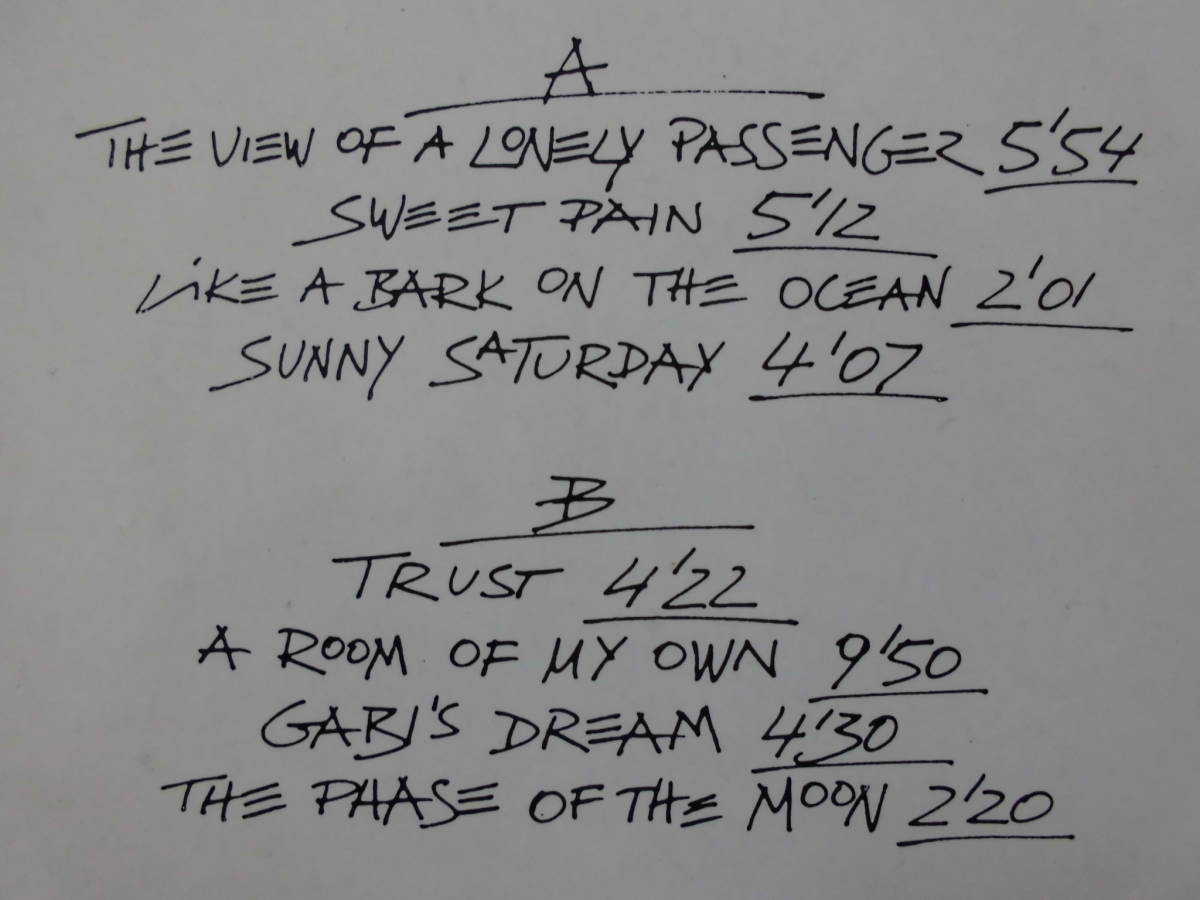 A
THE VIEW OF A LONELY PASSENGER 5'54
SWEET PAIN 5'12
LIKE A BARK ON THE OCEAN 2'01
SUNNY SATURDAY 4'07
B
TRUST 4'22
A ROOM OF MY OWN 9'50
GABI'S DREAM 4'30
THE PHASE OF THE MOON 2'20